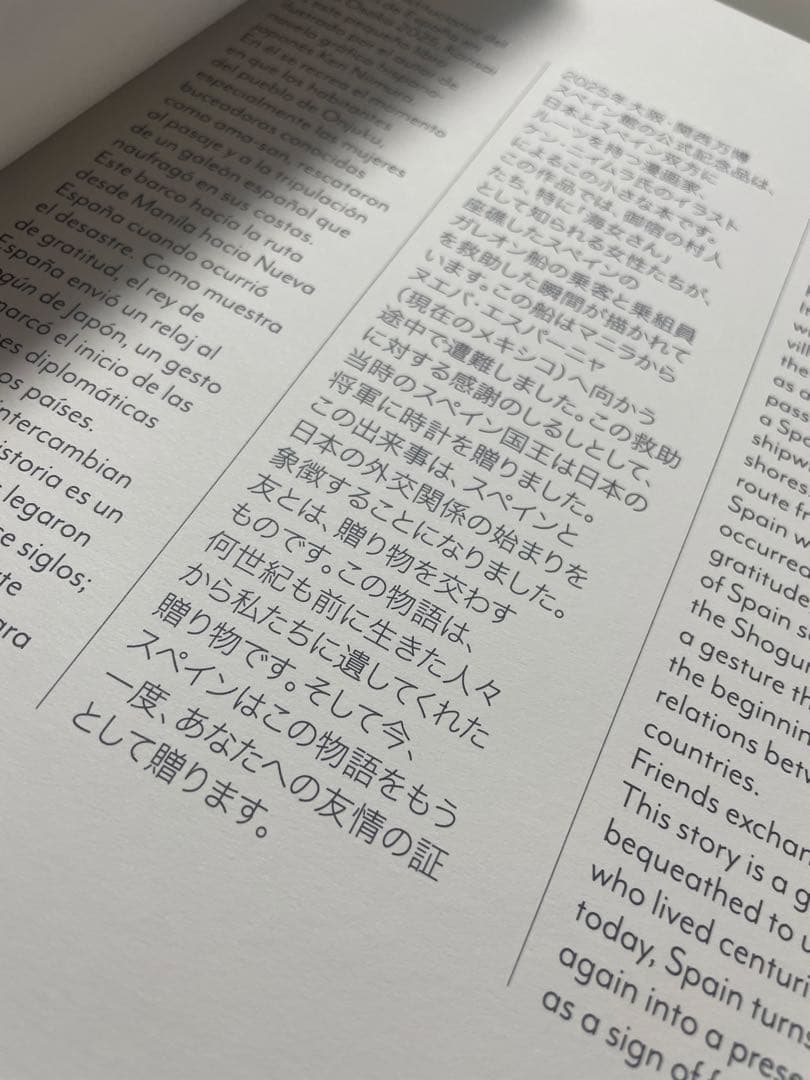 de España en
Osaka 2025, Kansai
es este pequeño libro
ilustrado por el autor de
novela gráfica hispano-
japonés Ken Niimura.
En él se recrea el momento
en que los habitantes
del pueblo de Onjuku,
especialmente las mujeres
buceadoras conocidas
como ama-san, rescataron
al pasaje y a la tripulación
de un galeón español que
naufragó en sus costas.
Este barco hacía la ruta
desde Manila hacia Nueva
España cuando ocurrió
el desastre. Como muestra
de gratitud, el rey de
España envió un reloj al
de Japón, un gesto
marcó el inicio de las
diplomáticas
países.
intercambian
historia es un
legaron
siglos;
2025年大阪・関西万博
スペイン館の公式記念品は、
日本とスペイン双方に
ルーツを持つ漫画家、
ケン・ニイムラ氏のイラスト
によるこの小さな本です。
この作品では、御宿の村人
たち、特に「海女さん」
として知られる女性たちが、
座礁したスペインの
ガレオン船の乗客と乗組員
を救助した瞬間が描かれて
います。この船はマニラから
ヌエバ・エスパーニャ
（現在のメキシコ）へ向かう
途中で遭難しました。この救助
に対する感謝のしるしとして、
当時のスペイン国王は日本の
将軍に時計を贈りました。
この出来事は、スペインと
日本の外交関係の始まりを
象徴することになりました。
友とは、贈り物を交わす
ものです。この物語は、
何世紀も前に生きた人々
から私たちに遺してくれた
贈り物です。そして今、
スペインはこの物語をもう
一度、あなたへの友情の証
として贈ります。
the
as
a
shores
route
Spain
occurred
gratitude
of Spain
the Shogun
a gesture
the beginning
relations
countries.
Friends
This story is a
bequeathed to
who lived
today, Spain turns
again into a
as a sign of